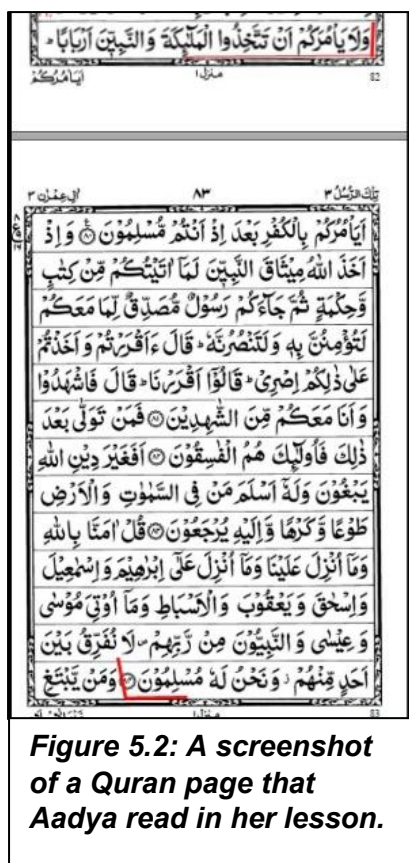 وَلَا يَاْمُرَكُمْ اَنْ تَتَّخِذُوا الْمَلٰٓئِكَةَ وَالنَّبِيّٖنَ اَرْبَابًا ؕ
اَيَاْمُرُكُمْ منزل ۱ 82
تِلْكَ الرُّسُلُ ٣ ٨٣ اٰلِ عِمْرٰن ٣
اَيَاْمُرُكُمْ بِالْكُفْرِ بَعْدَ اِذْ اَنْتُمْ مُّسْلِمُوْنَ ۝ وَاِذْ
اَخَذَ اللّٰهُ مِيْثَاقَ النَّبِيّٖنَ لَمَاۤ اٰتَيْتُكُمْ مِّنْ كِتٰبٍ
وَّحِكْمَةٍ ثُمَّ جَآءَكُمْ رَسُوْلٌ مُّصَدِّقٌ لِّمَا مَعَكُمْ
لَتُؤْمِنُنَّ بِهٖ وَلَتَنْصُرُنَّهٗ ؕ قَالَ ءَاَقْرَرْتُمْ وَاَخَذْتُمْ
عَلٰى ذٰلِكُمْ اِصْرِيْ ؕ قَالُوْۤا اَقْرَرْنَا ؕ قَالَ فَاشْهَدُوْا
وَاَنَا مَعَكُمْ مِّنَ الشّٰهِدِيْنَ ۝ فَمَنْ تَوَلّٰى بَعْدَ
ذٰلِكَ فَاُولٰٓئِكَ هُمُ الْفٰسِقُوْنَ ۝ اَفَغَيْرَ دِيْنِ اللّٰهِ
يَبْغُوْنَ وَلَهٗۤ اَسْلَمَ مَنْ فِى السَّمٰوٰتِ وَالْاَرْضِ
طَوْعًا وَّكَرْهًا وَّاِلَيْهِ يُرْجَعُوْنَ ۝ قُلْ اٰمَنَّا بِاللّٰهِ
وَمَاۤ اُنْزِلَ عَلَيْنَا وَمَاۤ اُنْزِلَ عَلٰٓى اِبْرٰهِيْمَ وَاِسْمٰعِيْلَ
وَاِسْحٰقَ وَيَعْقُوْبَ وَالْاَسْبَاطِ وَمَاۤ اُوْتِيَ مُوْسٰى
وَعِيْسٰى وَالنَّبِيُّوْنَ مِنْ رَّبِّهِمْ ۪ لَا نُفَرِّقُ بَيْنَ
اَحَدٍ مِّنْهُمْ ؗ وَنَحْنُ لَهٗ مُسْلِمُوْنَ ۝ وَمَنْ يَّبْتَغِ
83
Figure 5.2: A screenshot
of a Quran page that
Aadya read in her lesson.